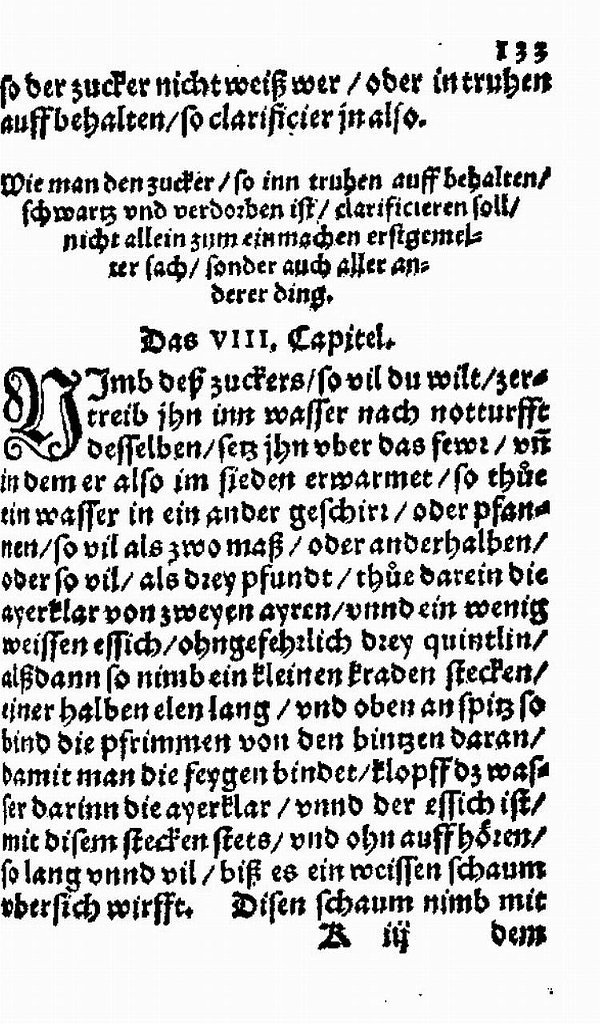 133
so der zucker nicht weiß wer / oder in truhen
auff behalten / so clarificier jn also.
Wie man den zucker / so inn truhen auff behalten /
schwartz vnd verdorben ist / clarificieren soll /
nicht allein zum einmachen erstgemel⸗
ter sach / sonder auch aller an⸗
derer ding.
Das VIII. Capitel.
NImb deß zuckers / so vil du wilt / zer⸗
treib jhn inn wasser nach notturfft
desselben / setz jhn vber das fewr / vñ
in dem er also im sieden erwarmet / so thůe
ein wasser in ein ander geschirr / oder pfan⸗
nen / so vil als zwo maß / oder anderhalben /
oder so vil / als drey pfundt / thůe darein die
ayerklar von zweyen ayren / vnnd ein wenig
weissen essich / ohngefehrlich drey quintlin /
alßdann so nimb ein kleinen kraden stecken /
einer halben elen lang / vnd oben an spitz so
bind die pfrimmen von den bintzen daran /
damit man die feygen bindet / klopff dz was⸗
ser darinn die ayerklar / vnnd der essich ist /
mit disem stecken stets / vnd ohn auff hören /
so lang vnnd vil / biß es ein weissen schaum
vbersich wirfft. Disen schaum nimb mit
R iij dem